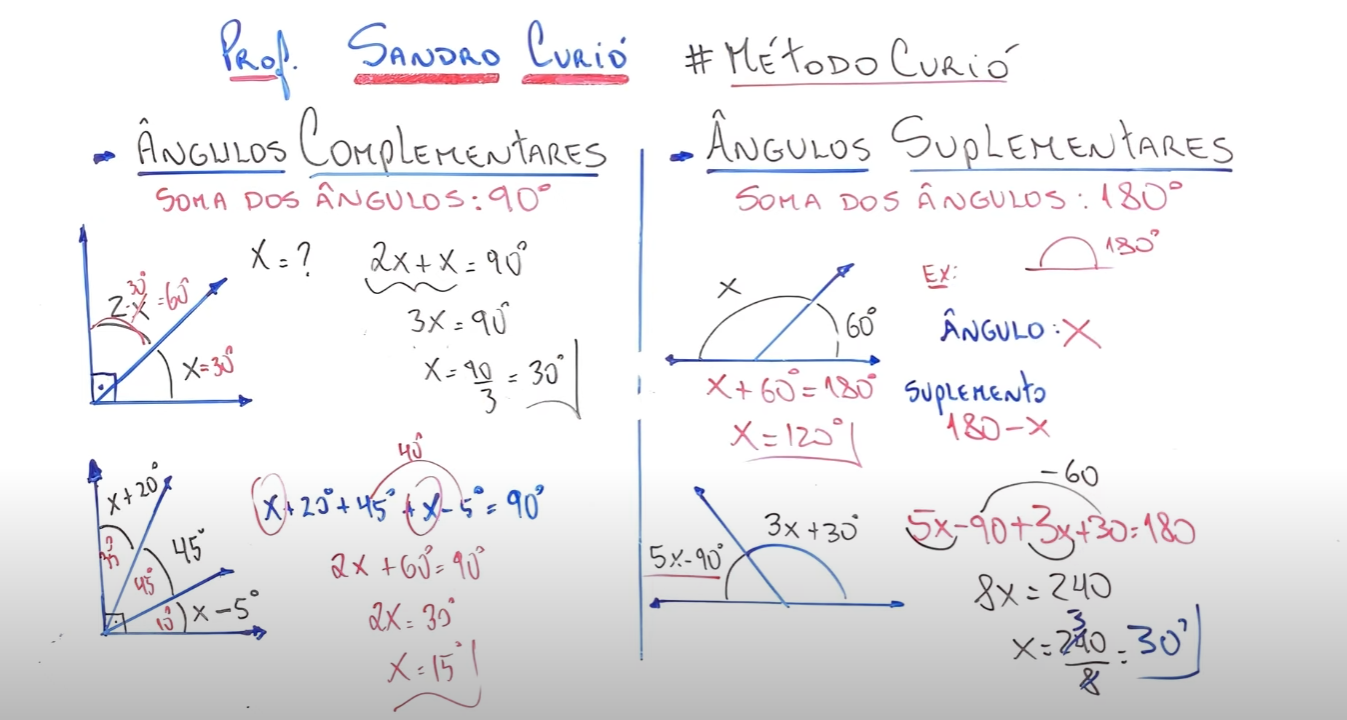 Prof. SANDRO CURIÓ #MÉTODO CURIÓ
- ÂNGULOS COMPLEMENTARES
SOMA DOS ÂNGULOS: 90°
X = ?
2x + x = 90°
3x = 90°
x = 90/3 = 30°
2·x = 60°
30°
x = 30°
x + 20°
45°
x - 5°
45°
10°
40°
x + 20° + 45° + x - 5° = 90°
2x + 60° = 90°
2x = 30°
x = 15°
- ÂNGULOS SUPLEMENTARES
SOMA DOS ÂNGULOS: 180°
x
60°
x + 60° = 180°
x = 120°
EX:
180°
ÂNGULO: X
SUPLEMENTO
180 - x
5x - 90°
3x + 30°
-60
5x - 90 + 3x + 30 = 180
8x = 240
x = 240/8 = 30°
3